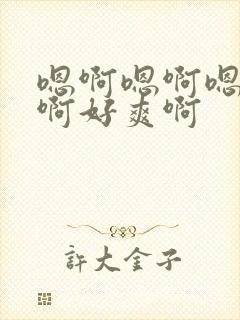 嗯啊嗯啊嗯
啊好爽啊
許大金子